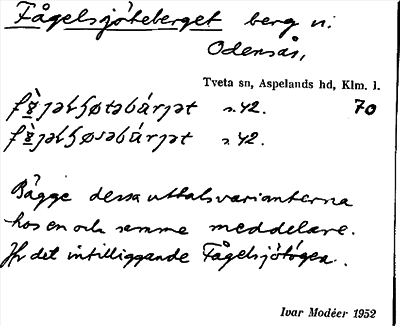 Fågelsjöteberget berg n.
Odensås,
Tveta sn, Aspelands hd, Klm. l.
s. 42. 70
s. 42.
Bägge dessa uttalsvarianterna
hos en och samme meddelare.
Jfr det intilliggande Fågelsjötögea.
Ivar Modéer 1952